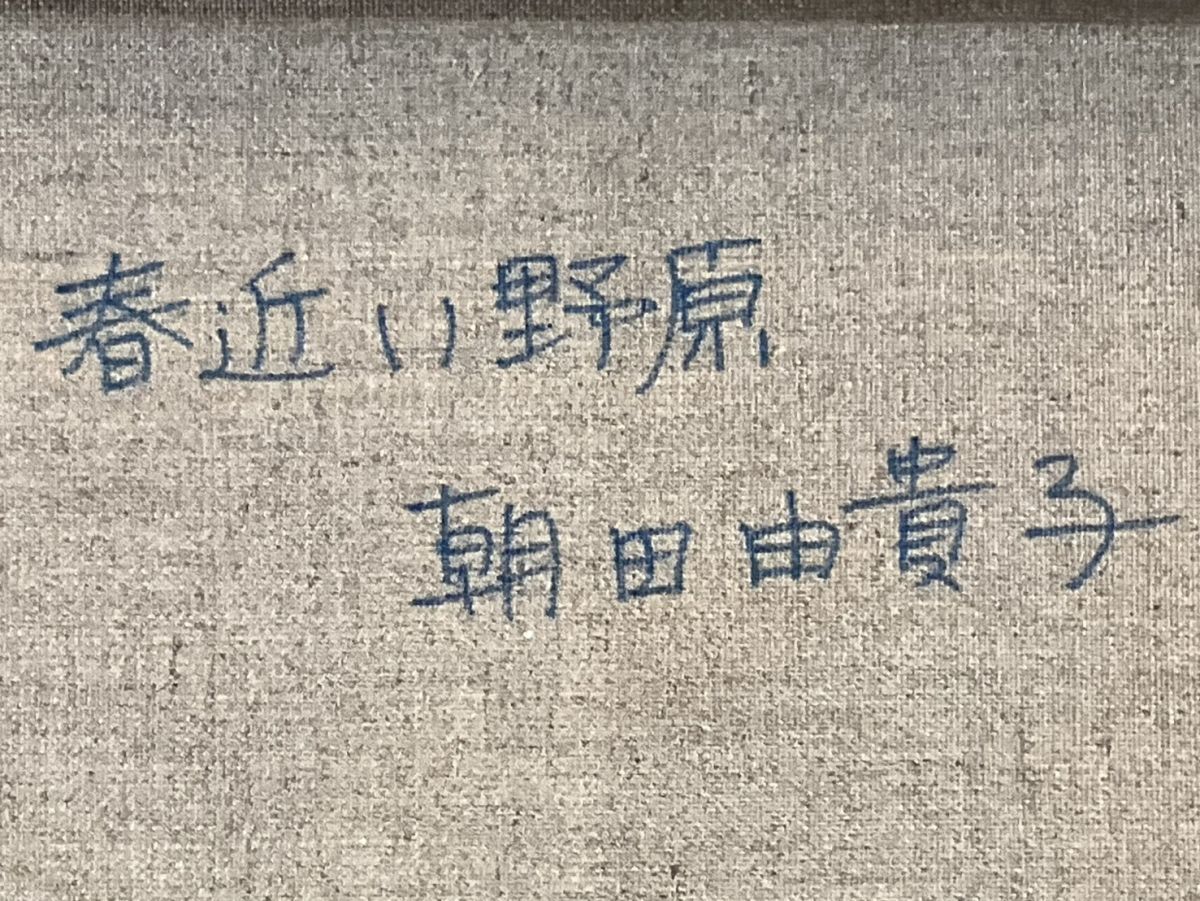 春近い野原
朝田由貴子